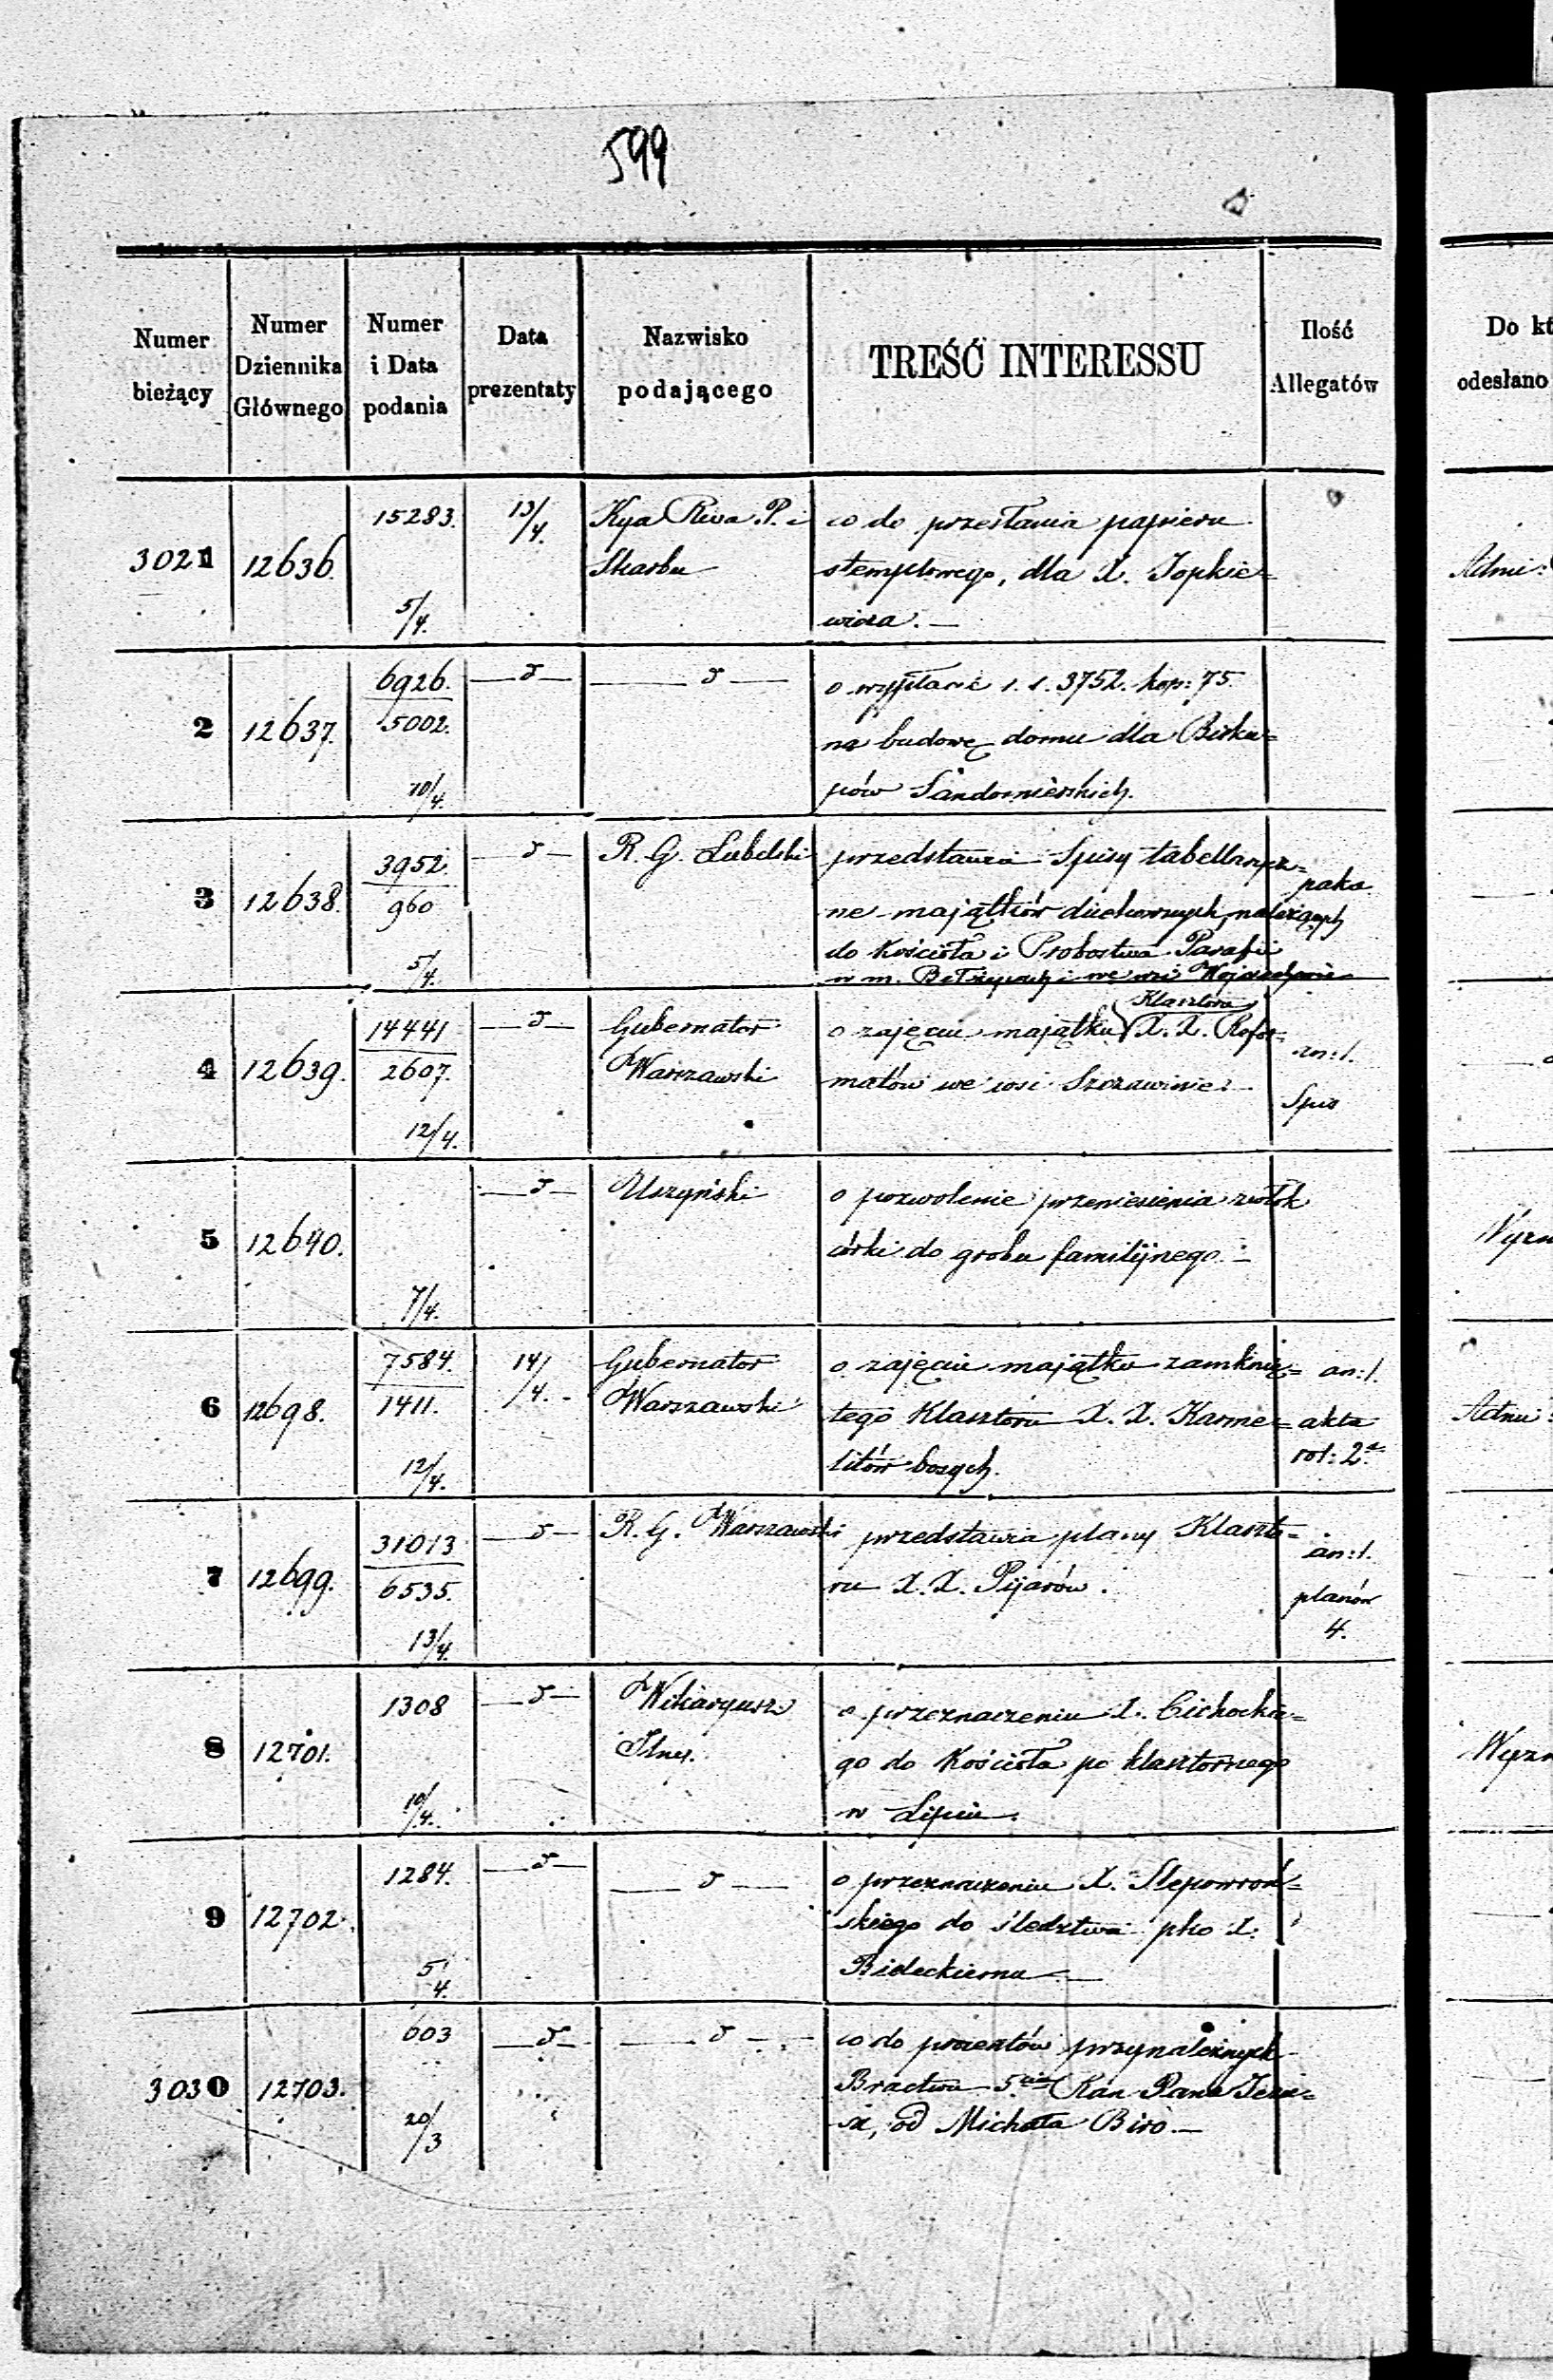 599
Numer bieżący
Numer Dziennika Głównego
Numer i Data podania
Data prezentaty
Nazwisko podającego
TREŚĆ INTERESSU
Ilość Allegatów
Do kt
odesłano
3021 12636. 15283. 5/4. 13/4. Kya Rwa P. i co do przesłania papieru
Skarbu stemplowego, dla X. Jopkie=
wicza. —
Admi:
2 12637. 6926. 5002. 10/4. — d — — d — o wypłacie r. s. 3752. kop: 75.
na budowę domu dla Bisku=
pów Sandomierskich.
3 12638. 3952. 960 5/4. — d — R. G. Lubelski przedstawia Spisy tabellarycz=
ne majątków duchownych, należących paka
do Kościoła i Probostwa Parafii
w m. Bełżycach i we wsi Wojciechowie
4 12639. 14441 2607. 12/4. — d — Gubernator o zajęciu majątku Klasztoru X. X. Refor= an: 1.
Warszawski matów we wsi Szczawinie. Spis
5 12640. 7/4. — d — Uszyński o pozwolenie przeniesienia zwłok
córki do grobu familijnego. —
Wyzn
6 12698. 7584. 1411. 12/4. 14/4. Gubernator o zajęciu majątku zamknię= an: 1.
Warszawski tego Klasztoru X. X. Karme= akta
litów bosych. vol: 2.
Admi:
7 12699. 31013 6535. 13/4. — d — R. G. Warszawski przedstawia plany Klaszto= an: 1.
ru X. X. Pijarów. planów
4.
8 12701. 1308 10/4. — d — Wikaryusz o przeznaczeniu X. Cichockie=
Jlny. go do Kościoła po klasztornego
w Lipiu.
Wyzn
9 12702. 1284. 5/4. — d — — d — o przeznaczeniu X. Slepowroń=
skiego do śledztwa pko X.
Bieleckiemu —
3030 12703. 603 20/3 — d — — d — co do procentów przynależnych
Bractwu 5.ciu Ran Pana Jezu=
sa, od Michała Biro. —